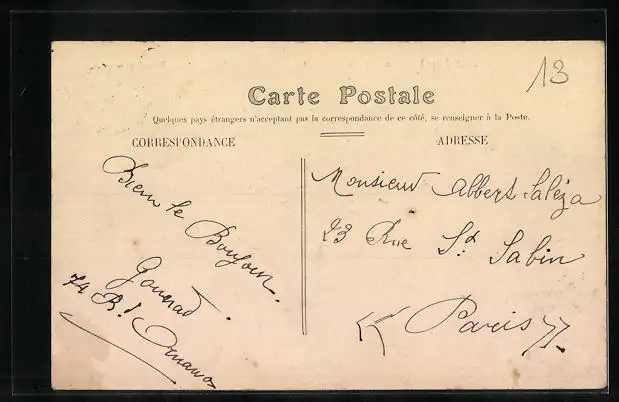 13
Carte Postale
Quelques pays étrangers n'acceptant pas la correspondance de ce côté, se renseigner à la Poste.
CORRESPONDANCE
ADRESSE
Bien le Bonjour.
74 Bd Ornano
Monsieur Albert Saléza
23 Rue St Sabin
Paris